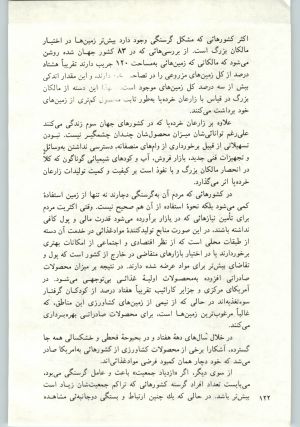 اکثر کشورهائی که مشکل گرسنگی وجود دارد بیش‌تر زمین‌ها در اختیار
مالکان بزرگ است. از بررسی‌هائی که در ۸۳ کشور جهان شده روشن
می‌شود که مالکانی که زمین‌هائی به‌مساحت ۱۲۰ جریب دارند تقریباً هشتاد
درصد از کل زمین‌های مزروعی را در تصاحب خود دارند، و این مقدار اندکی
بیش از سه درصد کل زمین‌های موجود است. این دسته از مالکان
بزرگ در قیاس با زارعان خرده‌پا به‌طور ثابت محصول کم‌تری از زمین‌های
خود برداشت می‌کنند.
علاوه بر زارعان خرده‌پا که در کشورهای جهان سوم زندگی می‌کنند
علی‌رغم توانائی‌شان میزان محصول‌شان چندان چشمگیر نیست. نبودن
تسهیلاتی از قبیل برخورداری از وام‌های منصفانه، دسترسی نداشتن به‌وسائل
و تجهیزات فنی جدید، بازار فروش، آب و کودهای شیمیائی گوناگون که کلاً
در انحصار مالکان بزرگ است و با نفوذ است بر کیفیت و کمیت تولیدات زارعان
خرده‌پا اثر می‌گذارد.
در کشورهائی که مردم آن به‌گرسنگی دچارند نه تنها از زمین استفادهٔ
کمی می‌شود بلکه نحوهٔ استفاده از آن هم صحیح نیست. وقتی اکثریت مردم
برای تأمین نیازهائی که در بازار برآورده می‌شود قدرت مالی و پول کافی
نداشته باشند، در این صورت منابع تولیدکنندهٔ موادغذائی در خدمت آن دسته
از طبقات محلی است که از نظر اقتصادی و اجتماعی از امکانات بهتری
برخوردارند یا در اختیار بازارهای متقاضی در خارج از کشور است که پول و
تقاضای بیش‌تر برای مواد عرضه شده دارند. در نتیجه بر میزان محصولات
صادراتی افزوده به‌محصولات اولیهٔ غذائی بی‌توجهی می‌شود. در
آمریکای مرکزی و جزایر کارائیب تقریباً هفتاد درصد از کودکان گرفتار
سوءتغذیه‌اند در حالی که از نیمی از زمین‌های کشاورزی این مناطق، که
غالباً مرغوب‌ترین زمین‌ها است، برای محصولات صادراتی بهره‌برداری
می‌کنند.
در خلال سال‌های دههٔ هفتاد و در بحبوحهٔ قحطی و خشکسالی همه جا
گسترده، آشکارا برخی از محصولات کشاورزی از کشورهائی به‌امریکا صادر
می‌شد که خود دچار همان کمبود فرضی موادغذائی بودند.
از سوی دیگر، اگر «ازدیاد جمعیت» باعث و عامل گرسنگی می‌بود،
می‌بایست تعداد افراد گرسنه کشورهائی که تراکم جمعیت‌شان زیاد است
بیش‌تر باشد. در حالی که یك چنین ارتباط و بستگی دوجانبه‌ئی مشاهده
۱۲۲